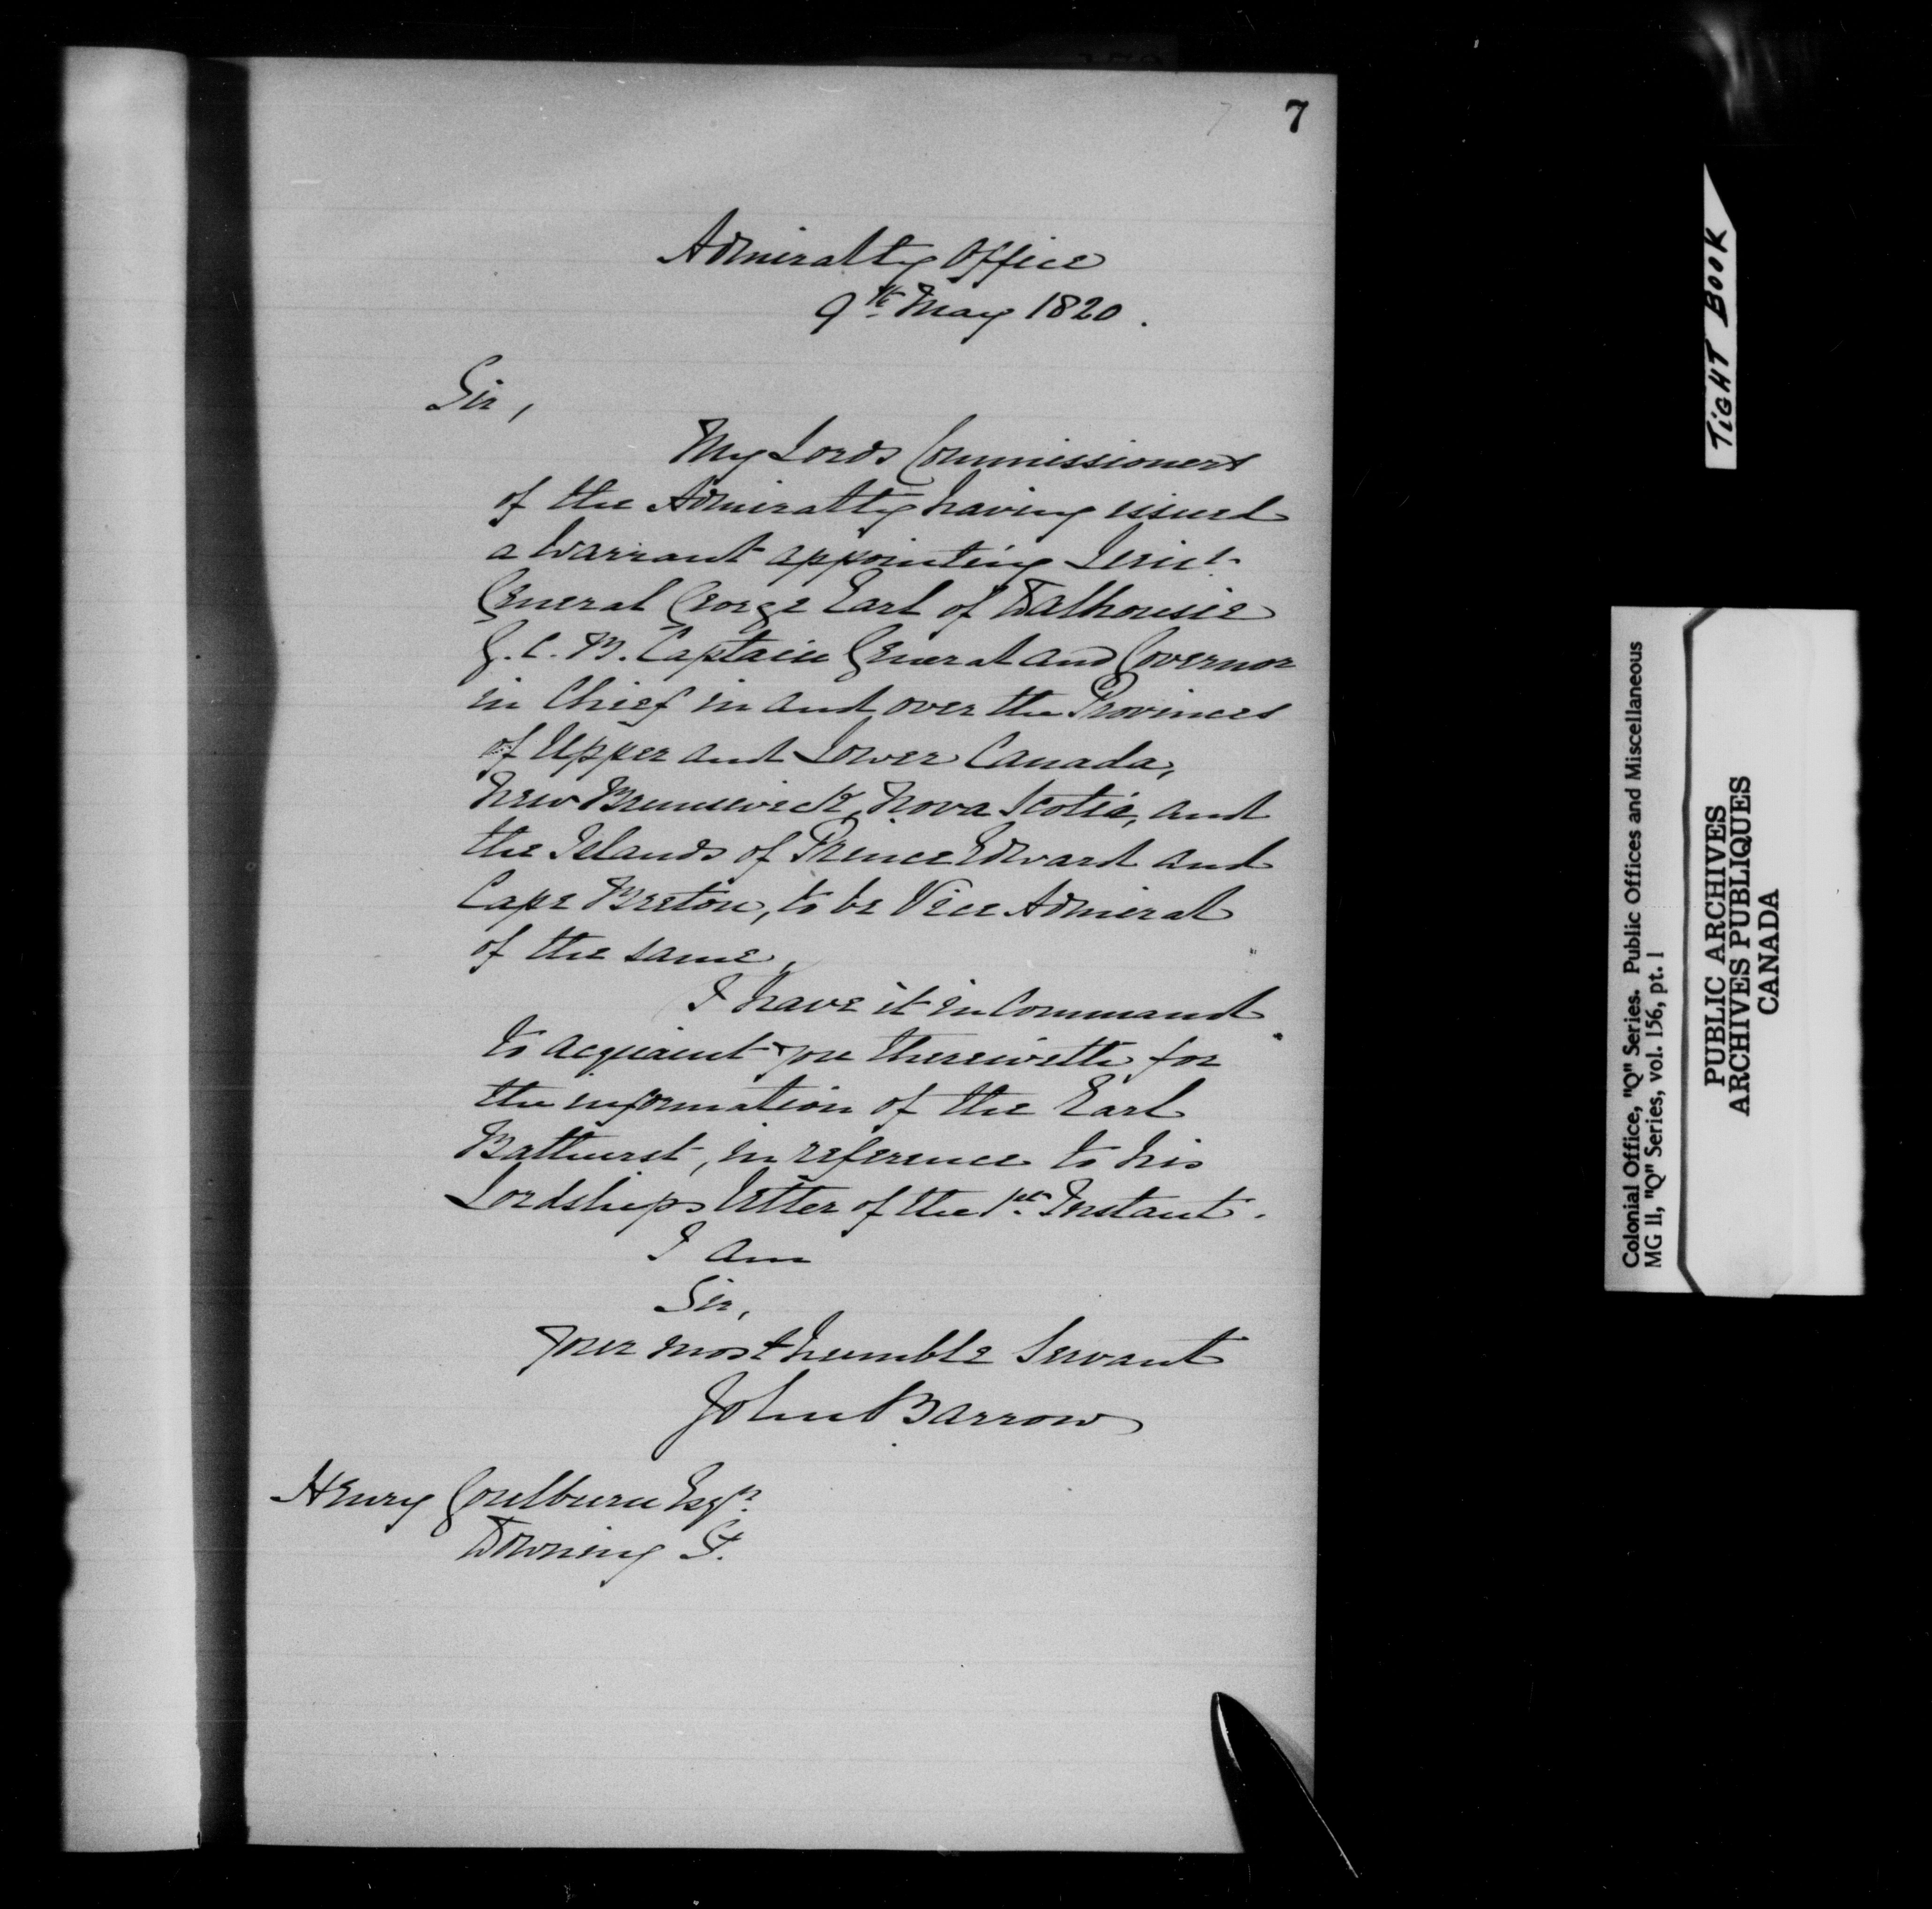 7
7
Admiralty Office
9th May 1820.
Sir,
My Lords Commissioners
of the Admiralty having issued
a Warrant appointing Lieut.
General George Earl of Dalhousie
G.C.B. Captain General and Governor
in Chief in and over the Provinces
of Upper and Lower Canada,
New Brunswick, Nova Scotia, and
the Islands of Prince Edward and
Cape Breton, to be Vice Admiral
of the same,
I have it in Command
to acquaint you therewith for
the information of the Earl
Bathurst, in reference to his
Lordships letter of the 1st Instant.
I am
Sir,
Your most humble Servant
John Barrow
Henry Goulburn Esqr.
Downing St.
TIGHT BOOK
Colonial Office, "Q" Series. Public Offices and Miscellaneous
MG 11, "Q" Series, vol. 156, pt. 1
PUBLIC ARCHIVES
ARCHIVES PUBLIQUES
CANADA